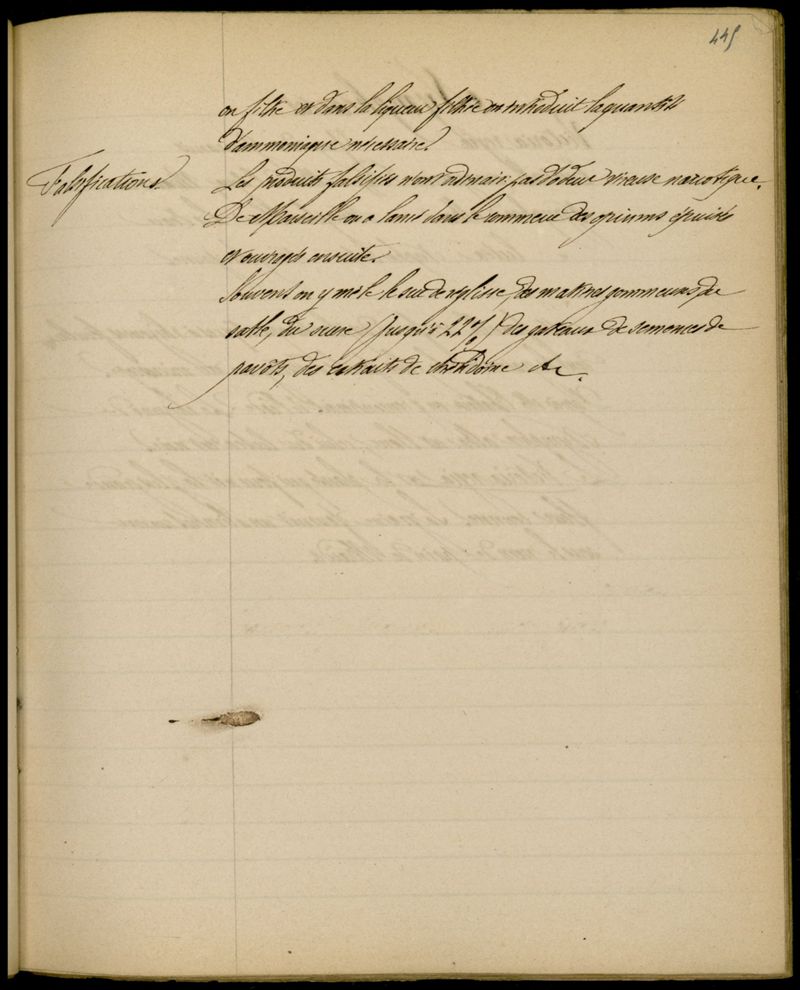 445
on filtre et dans la liqueur filtrée on introduit la quantité
d'ammoniaque nécessaire.
Falsifications.
Les produits falsifiés n'ont d'odeur vireuse narcotique.
De Marseille on a lancé dans le commerce des opiums épuisés
et ensuite.
Souvent on y mêle le suc de réglisse, des matières gommeuses du
sable, du sucre (jusqu'à 22%) des gateaux de semences de
pavots, des extraits de chélidoine etc.